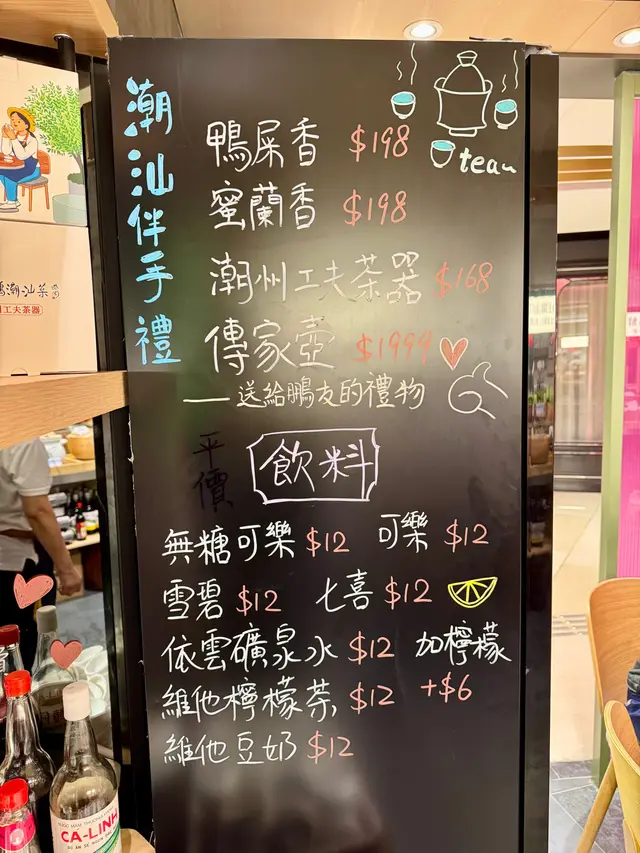 潮汕伴手禮
鴨屎香 $198
蜜蘭香 $198
潮州工夫茶器 $168
傳家壺 $1999
——送給鵬友的禮物
tea
平價
飲料
無糖可樂 $12 可樂 $12
雪碧 $12 七喜 $12
依雲礦泉水 $12 加檸檬
維他檸檬茶 $12 +$6
維他豆奶 $12
潮汕菜
工夫茶器
CA-LINH